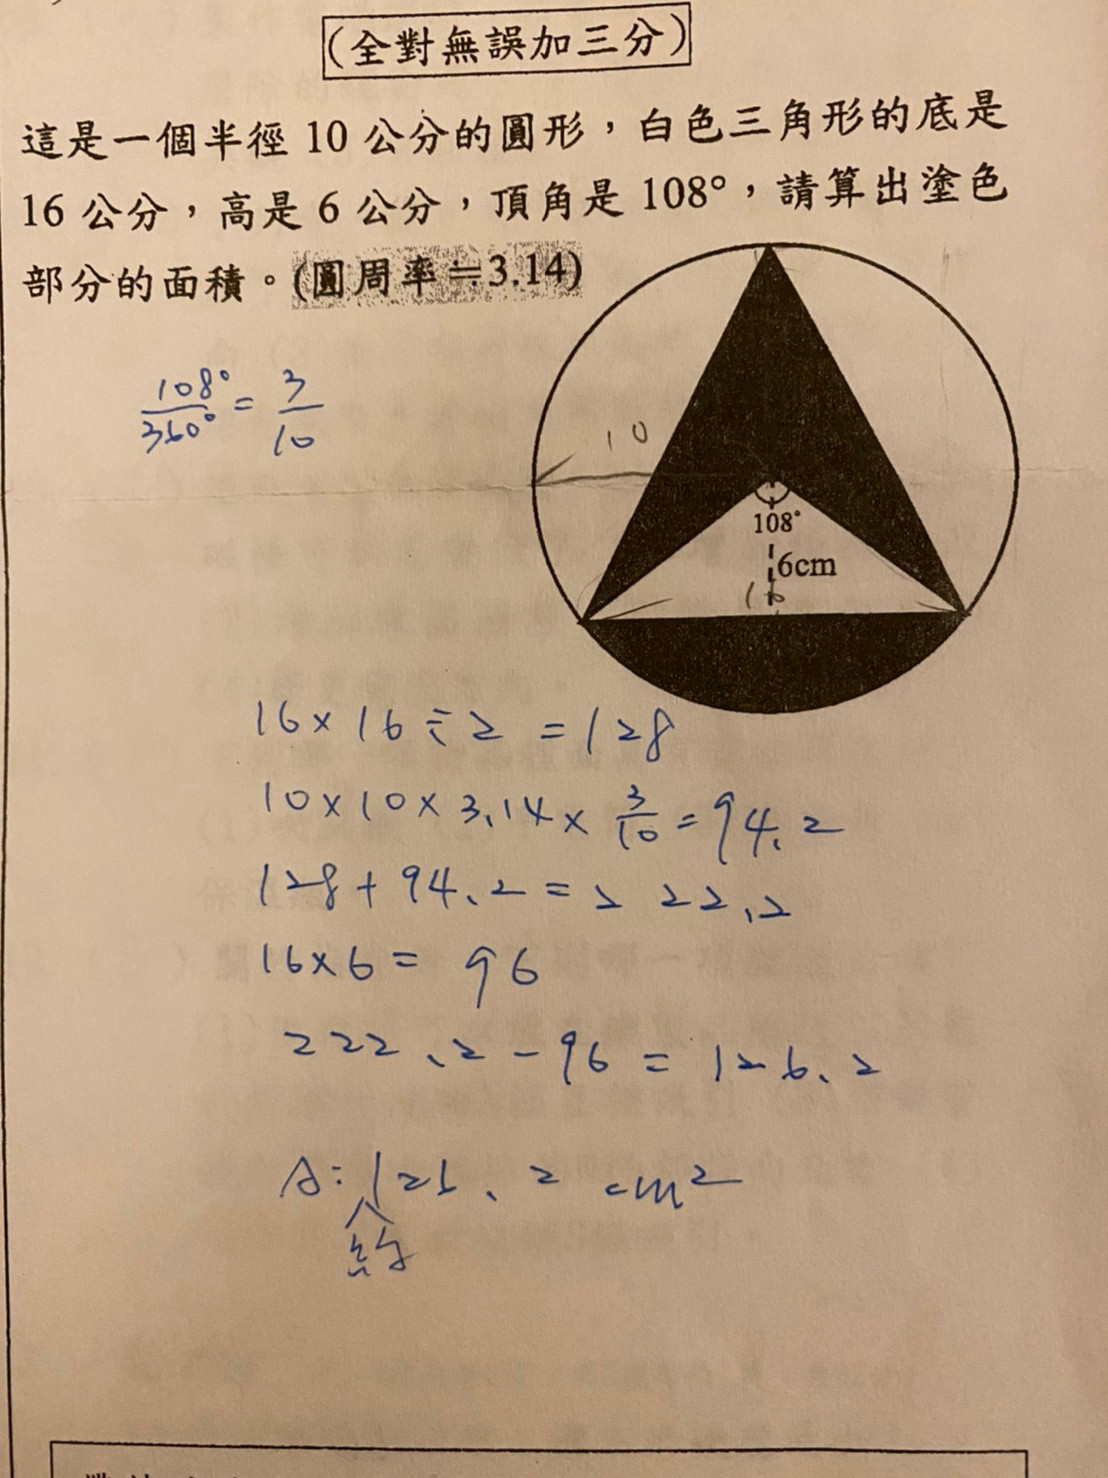 (全對無誤加三分)
這是一個半徑 10 公分的圓形，白色三角形的底是
16 公分，高是 6 公分，頂角是 108°，請算出塗色
部分的面積。(圓周率≒3.14)
108°/360° = 3/10
10
108°
6cm
16
16×16÷2 =128
10×10×3.14×3/10=94.2
128+94.2=222.2
16×6= 96
222.2-96=126.2
A:126.2 cm²
約